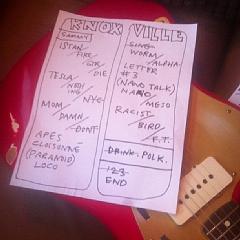 KNOXVILLE
SAMMY
ISTAN/
FIRE/
GTR/
DIE
TESLA/
NOTHING/
NYE
MOM/
DAMN/
DONT
APES
CLOISONNE
(PARANOID)
LOCO
SING
WORM/
ALPHA
LETTER
#3
(NANO TALK)
NANO/
MESO
RACIST/
BIRD/
F.T.
DRINK. POLK.
123
END